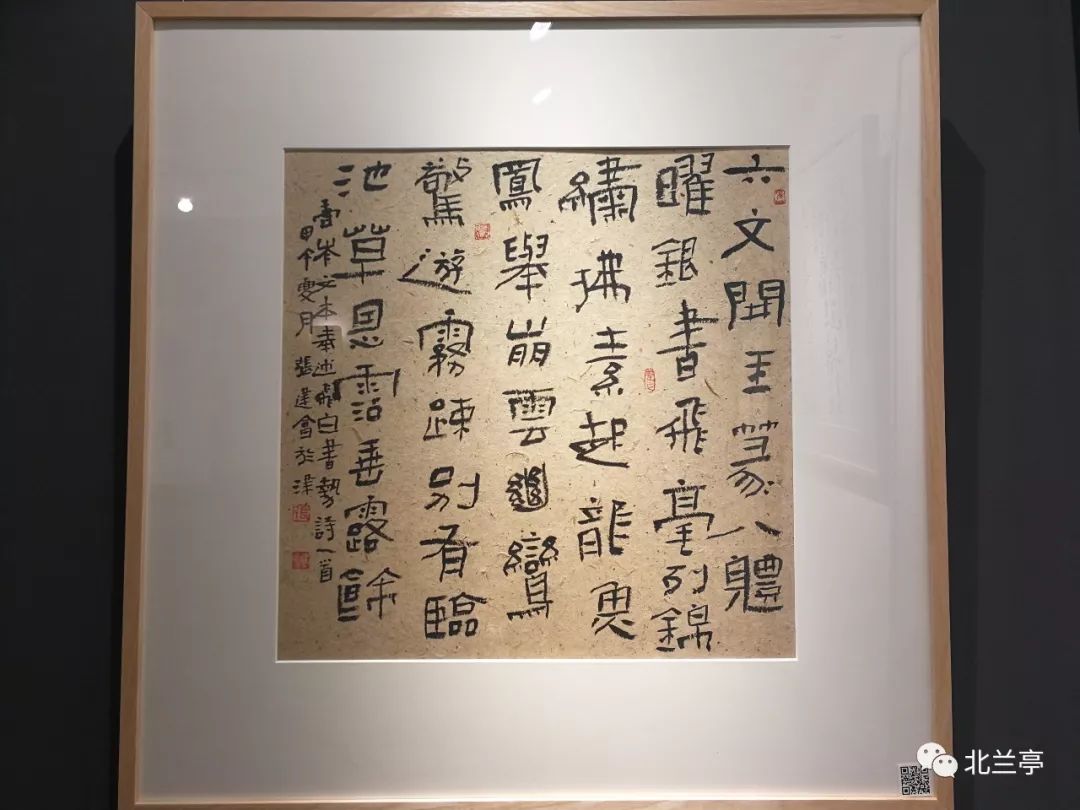 六文開玉篆八體
曜銀書飛毫列錦
繡拂素起龍魚
鳳舉崩雲𢇍鸞
驚遊霧疎別有臨
池草恩霑垂露餘
岑文本奉述飛白書勢詩一首
夏月張建會於津
北兰亭